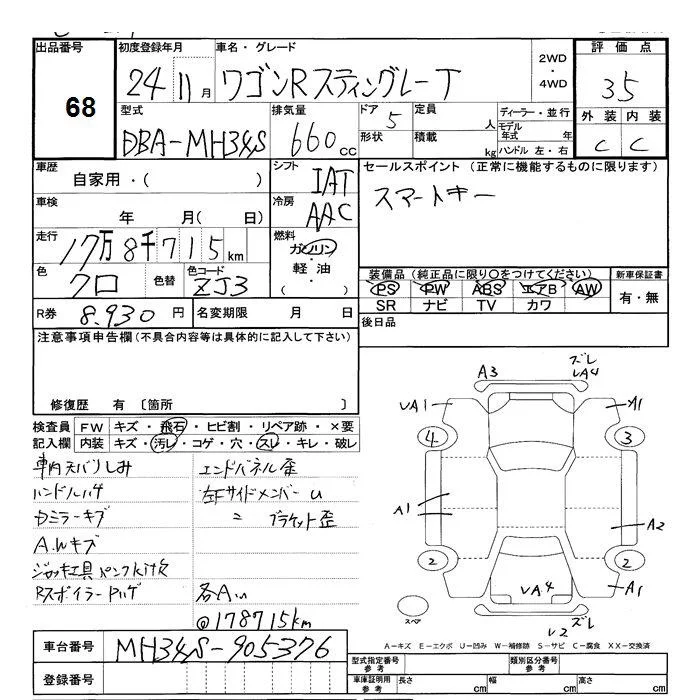 出品番号
68
初度登録年月
24 11 月
車名・グレード
ワゴンRスティングレー T
2WD
・
4WD
評価点
3.5
型式
DBA-MH34S
排気量
660 cc
ドア
5
形状
定員
人
積載
kg
ディーラー・並行
モデル年式 年
ハンドル 左・右
外装 内装
C C
車歴
自家用・( )
シフト
IAT
セールスポイント(正常に機能するものに限ります)
スマートキー
車検
年 月( 日)
冷房
AAC
走行
17万8千715km
燃料
ガソリン
・
軽油
・
( )
色
クロ
色替
色コード
ZJ3
装備品(純正品に限り○をつけてください)
PS PW ABS エアB AW
SR ナビ TV カワ
新車保証書
有・無
R券 8,930 円
名変期限 月 日
後日品
注意事項申告欄(不具合内容等は具体的に記入して下さい)
修復歴 有 〔箇所 〕
検査員 FW キズ・飛石・ヒビ割・リペア跡・×要
記入欄 内装 キズ・汚レ・コゲ・穴・スレ・キレ・破レ
車内天バリしみ
ハンドルハゲ
Dミラーキズ
A.Wキズ
ジャッキ工具パンク材欠
Rスポイラー Pハゲ
エンドパネル歪
左Fサイドメンバー U
〃 ブラケット歪
各AU
@178715km
A3
ズレ
UA4
UA1
A1
4
3
A1
A2
2
2
UA4
A1
スペア
ズレ
U2
A-キズ E-エクボ U-凹み W-補修跡 S-サビ C-腐食 XX-交換済
車台番号 MH34S-905376
登録番号
型式指定番号 参考
類別区分番号 参考
車庫証明用 参考
長さ cm
幅 cm
高さ cm